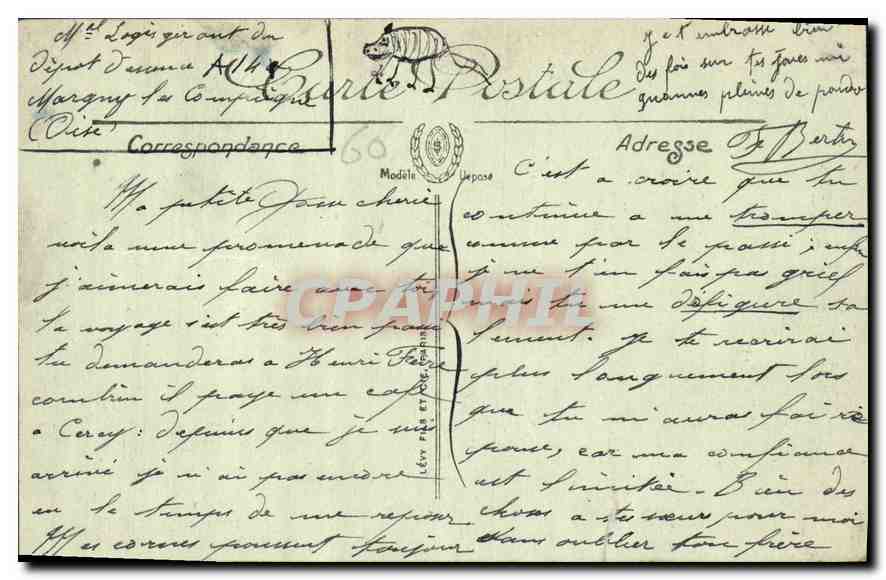 Mal Logis gerant du
dépot d'essence A 114 e
Margny les Compiègne
(Oise)
Carte Postale
Correspondance
60
Modèle Déposé
Adresse
Ma petite chérie
voila une promenade que
j'aimerais faire avec toi,
le voyage s'est très bien passé
tu demanderas a Henri
combien il paye un café
a Cercy : depuis que je suis
arrivé je n'ai pas encore
eu le temps de me reposer
Mes cornes poussent toujours
LÉVY FILS ET CIE, PARIS
C'est a croire que tu
continue a me tromper
comme par le passé ; enfin
je ne t'en fais pas grief
mais tu me défigure sa
lement. Je te recrirai
plus longuement lors
que tu m'auras fait ré
ponse, car ma confiance
est limitée. Bien des
choses a tes sœurs pour moi
sans oublier ton frère
je t'embrasse bien
des fois sur tes joues
pleines de poudre
Bertin
CPAPHIL